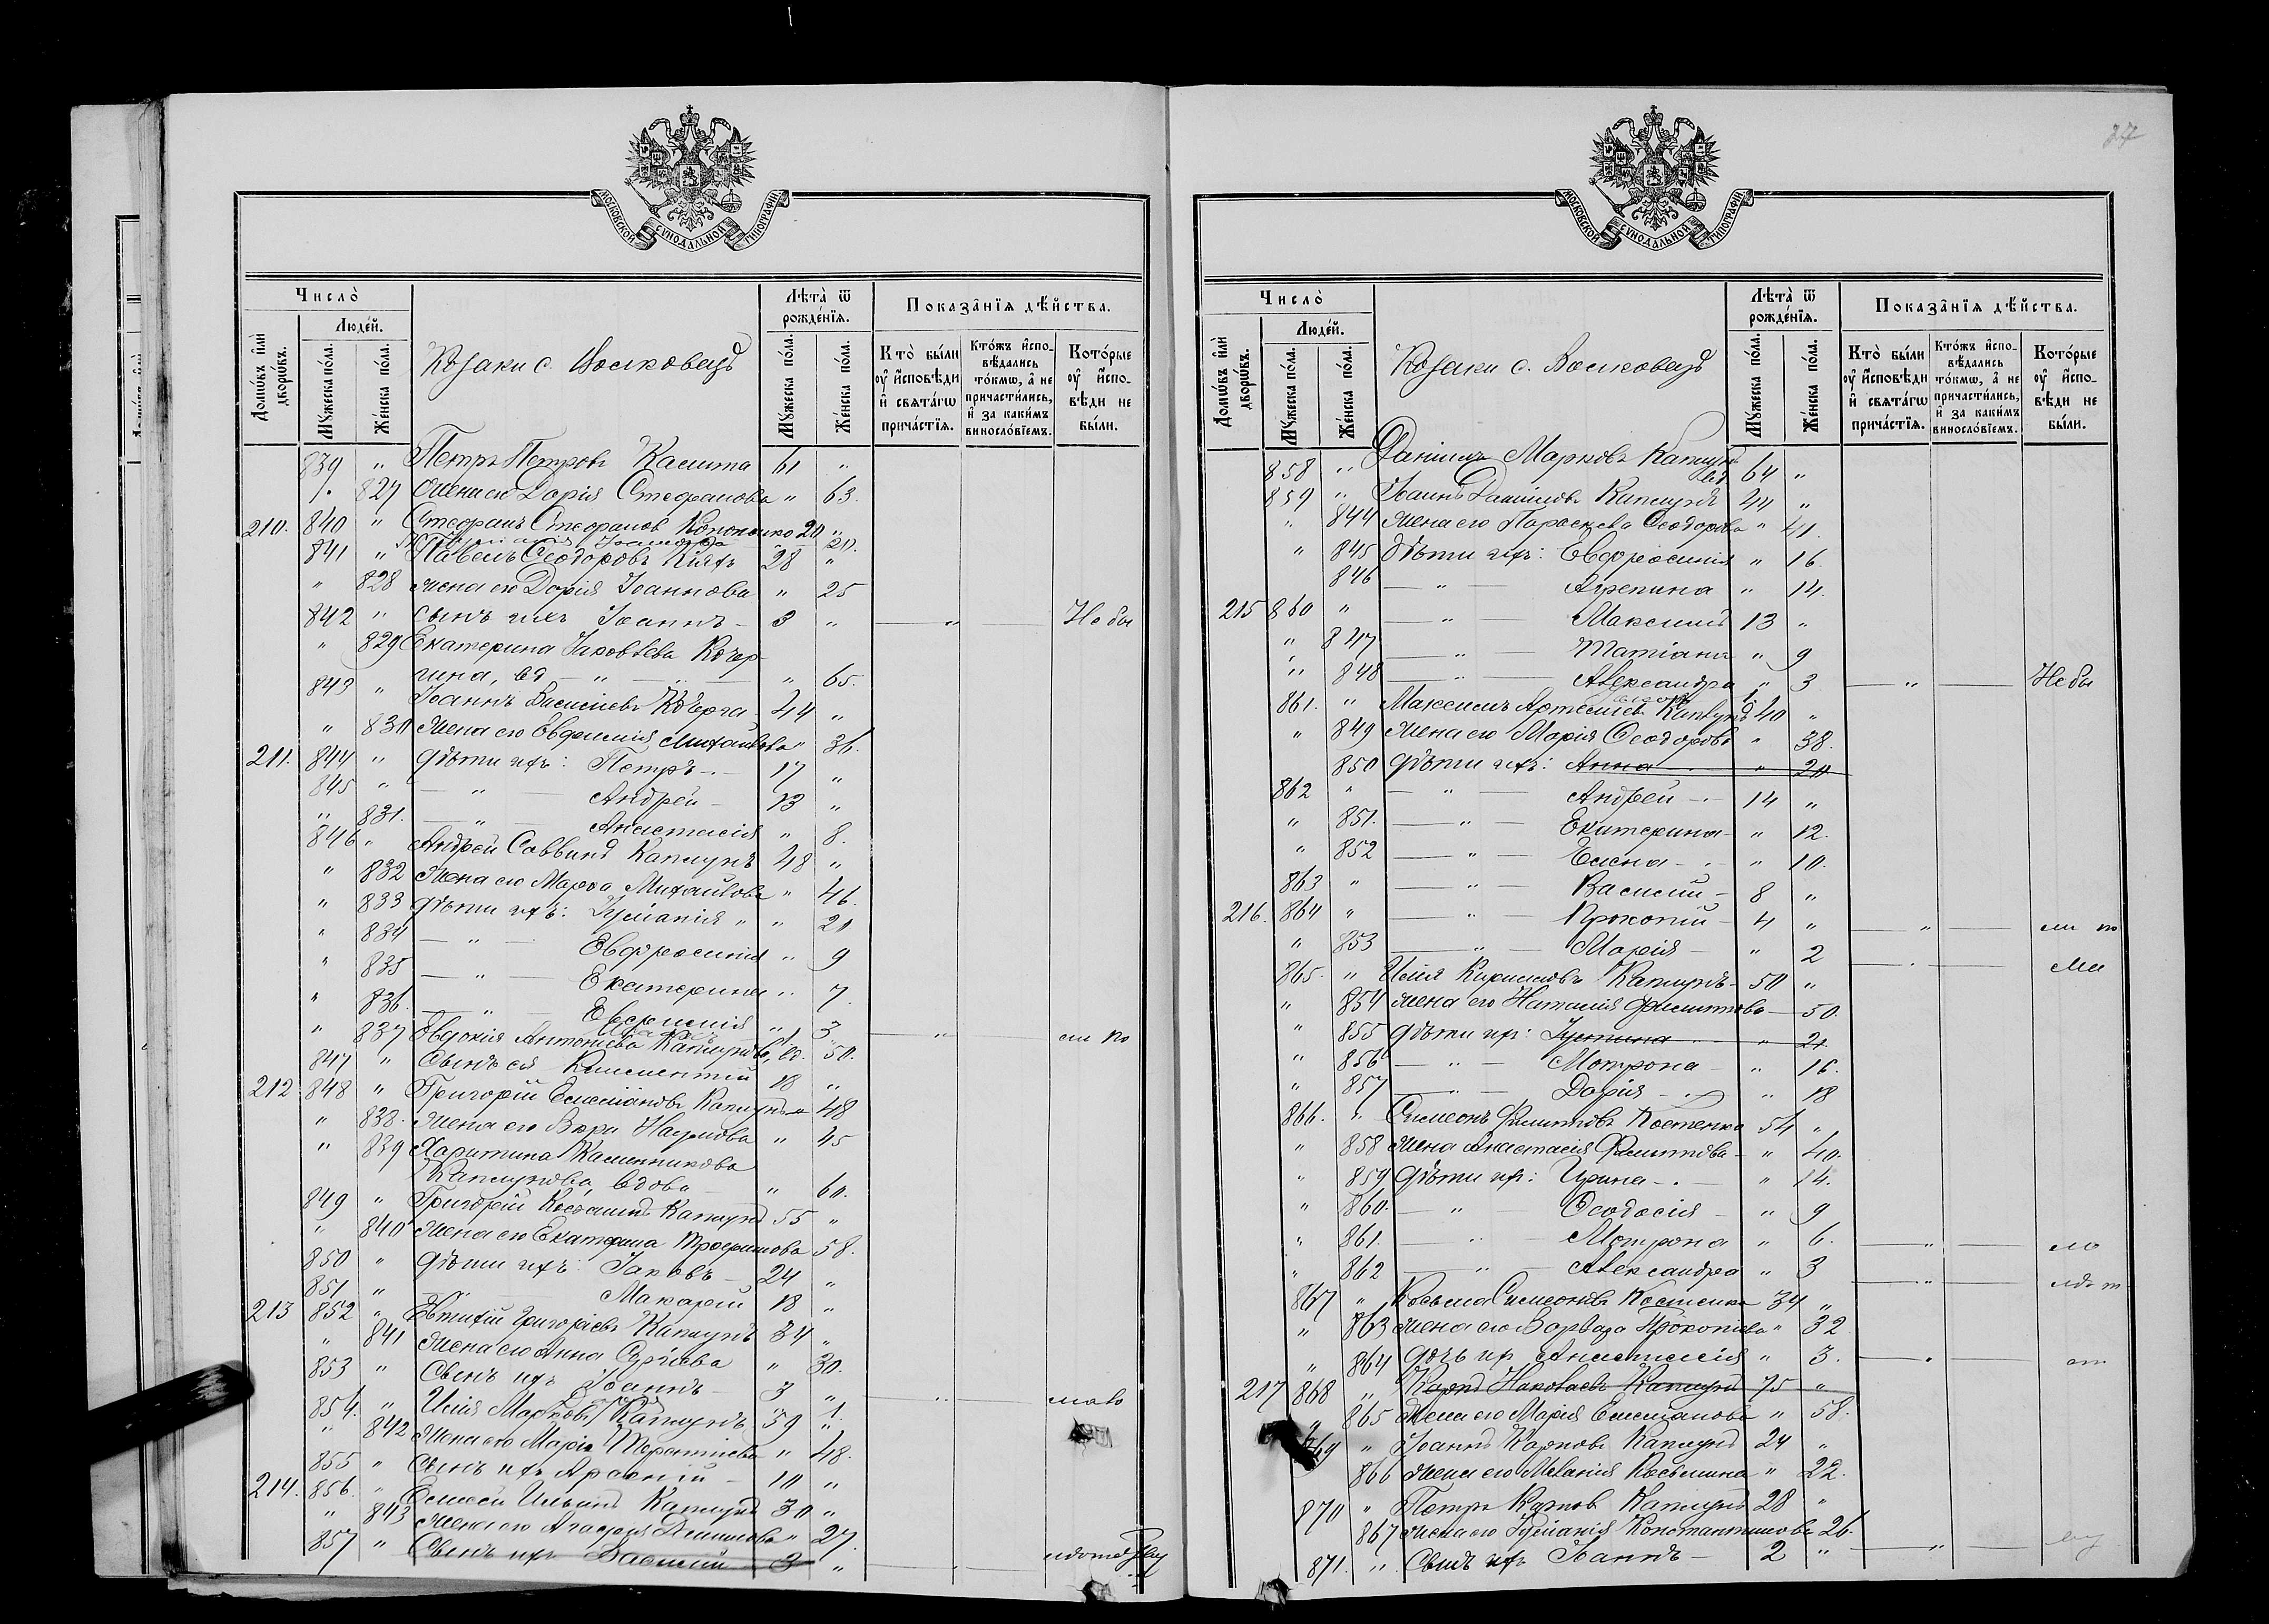 27
МОСКОВСКОЙ СУНОДАЛЬНОЙ ТИПОГРАФІИ
Число̀
Домѡ́въ и҆лѝ дворѡ́въ.
Люде́й.
Мꙋ́жеска по́ла.
Же́нска по́ла.
Козаки с. Волковецъ
Лѣ́та ѿ рожде́нїѧ.
Мꙋ́жеска по́ла.
Же́нска по́ла.
Показа̂нїѧ дѣ́йства.
Кто̀ бы́ли ᲂу҆ и҆́сповѣди и҆ свѧта́гѡ прича́стїѧ.
Кто́жъ и҆спо-вѣ́дались то́кмѡ, а҆ не причасти́лись, и҆ за каки́мъ винослѡ́вїемъ.
Кото́рые ᲂу҆ и҆́спо-вѣди не бы́ли.
839 " Петръ Петровъ Калита 61 "
". 827 Жена его Дарія Стефанова " 63.
210. 840 " Стефанъ Стефановъ Кононенко 20 "
841 " Павелъ Ѳеодоровъ Кіяхъ 28 "
" 828 Жена его Дарія Іоаннова " 25
842 " Сынъ ихъ Іоаннъ - 3 " — " — Не бы
" 829 Екатерина Іаковлева Кочер-
гина, вд — " — " 65.
843 " Іоаннъ Василіевъ Кочерга 44 "
" 830 Жена его Евфимія Михайлова " 36.
211. 844 " Дѣти ихъ: Петръ - 17 "
845 " — " — Андрей - 13 "
" 831. — " — Анастасія " 8.
846 " Андрей Саввинъ Каплунъ 48 "
" 832 Жена его Марѳа Михайлова " 46.
" 833 Дѣти ихъ: Іуліанія " " 21
" 834 — " — Евфросинія " 9
" 835 — " — Екатерина " 7.
" 836. — " — Евфимія " 3 — " —
" 837 Евдокія Антоніева Каплунова, вд. 50.
847 " Сынъ ея Климентій 18 "
212 848 " Григорій Емеліановъ Каплунъ 48
" 838. Жена его Вѣра Наумова " 45
" 839 Харитина Калинникова
Каплунова вдова - " 60.
849 " Григорій Каплунъ 55 "
" 840 Жена его Екатерина Трофимова 58.
850 " Дѣти ихъ: Іаковъ - 24 "
851 " Макарій 18 "
213 852 " Евтихій Григоріевъ Каплунъ 34 "
" 841 Жена его Анна Сергіева " 30.
853 " Сынъ ихъ Іоаннъ - 3 " — " —
854. " Илія Марковъ Каплунъ 39 "
" 842 Жена его Марія Терентіева " 48.
855 " Сынъ ихъ Арсеній - 10 "
214. 856. " Ильинъ Каплунъ 30 "
" 843 Жена его Агафія " 27.
857 " Сынъ ихъ Василій 3 "
МОСКОВСКОЙ СУНОДАЛЬНОЙ ТИПОГРАФІИ
Число̀
Домѡ́въ и҆лѝ дворѡ́въ.
Люде́й.
Мꙋ́жеска по́ла.
Же́нска по́ла.
Козаки с. Волковецъ
Лѣ́та ѿ рожде́нїѧ.
Мꙋ́жеска по́ла.
Же́нска по́ла.
Показа̂нїѧ дѣ́йства.
Кто̀ бы́ли ᲂу҆ и҆́сповѣди и҆ свѧта́гѡ прича́стїѧ.
Кто́жъ и҆спо-вѣ́дались то́кмѡ, а҆ не причасти́лись, и҆ за каки́мъ винослѡ́вїемъ.
Кото́рые ᲂу҆ и҆́спо-вѣди не бы́ли.
858 " Даніилъ Марковъ Каплунъ
вд. 64 "
859 " Іоаннъ Даніиловъ Каплунъ 44 "
" 844 Жена его Параскева Ѳеодорова " 41.
" 845 Дѣти ихъ: Евфросинія " 16.
846 — " — Агрепина " 14.
215 860 " — " — Максимъ 13 "
" 847 — " — Татіана " 9
" 848 — " — Александра " 3 — " — Не бы
861. " Максимъ Артеміевъ Каплунъ 40 "
" 849 Жена его Марія Ѳеодорова " 38.
850 Дѣти ихъ: Анна " 20
862 " — " — Андрей - 14 "
" 851. — " — Екатерина - " 12.
" 852 — " — Елена - " 10.
863 " — " — Василій - 8 "
216. 864 " — " — Прокопій - 4 " — " —
" 853 — " — Марія - " 2 — " —
865. " Илія Кирилловъ Каплунъ - 50 "
" 854 Жена его Наталія Филиппова — 50.
" 855 Дѣти ихъ: Іустина " 21
" 856 — " — Мотрона " 16.
" 857 — " — Дарія - " 18
866. " Симеонъ Филипповъ Костенко 54 "
" 858 Жена Анастасія Филиппова - " 40.
" 859 Дѣти ихъ: Ирина - " 14.
" 860. — " — Ѳеодосія - " 9
" 861. — " — Мотрона " 6. — " —
" 862 — " — Александра " 3 — " —
867 " Козьма Симеоновъ Костенко 34 "
" 863 Жена его Варвара Прокопіева " 32
" 864 Дочь ихъ Анастасія " 3. — " —
217 868 " Карпъ Николаевъ Каплунъ 75 "
" 865 Жена его Марія Емеліанова " 58.
869 " Іоаннъ Карповъ Каплунъ 24 "
866 Жена его Меланія Косьмина " 22.
870 " Петръ Карповъ Каплунъ 28 "
867 Жена его Іуліанія Константинова 26.
871. " Сынъ ихъ Іоаннъ - 2 " — " —